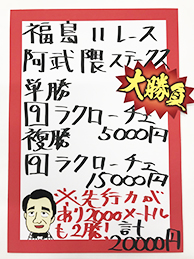 福島11レース
阿武隈ステークス
大勝負
単勝
9ラクローチェ
5000円
複勝
9ラクローチェ
15000円
※先行力が
あり2000メートル
も2勝!
計
20000円